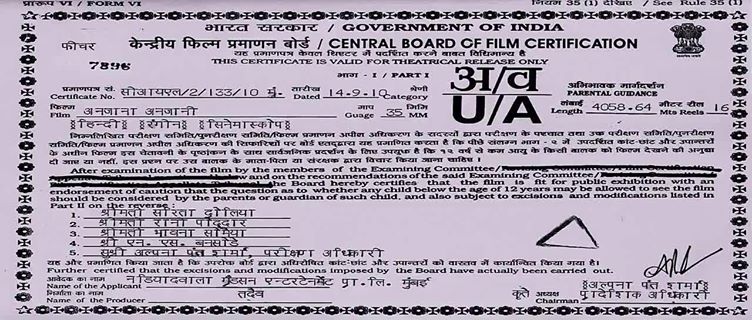 प्रारूप VI / FORM VI नियम 35 (1) देखिए / See Rule 35 (1)
भारत सरकार / GOVERNMENT OF INDIA
फीचर केन्द्रीय फिल्म प्रमाणन बोर्ड / CENTRAL BOARD OF FILM CERTIFICATION
यह प्रमाणपत्र केवल थिएटर में प्रदर्शित करने बाबत विधिमान्य है
7896 THIS CERTIFICATE IS VALID FOR THEATRICAL RELEASE ONLY
भाग - I / PART I
अ/व
U/A
प्रमाणपत्र सं. सीआयएल/2/133/10 मुं. तारीख 14.9.10 श्रेणी अभिभावक मार्गदर्शन
Certificate No. Dated Category PARENTAL GUIDANCE
फिल्म अनजाना अनजानी माप 35 मिमि लंबाई 4058.64 मीटर रील 16
Film Guage MM Length Mts Reels
हिन्दी रंगीन सिनेमास्कोप
निम्नलिखित परीक्षण समिति/पुनरीक्षण समिति/फिल्म प्रमाणन अपील अधिकरण के सदस्यों द्वारा परीक्षण के पश्चात तथा उक्त परीक्षण समिति/पुनरीक्षण
समिति/फिल्म प्रमाणन अपील अधिकरण की सिफारिशों पर बोर्ड एतद्द्वारा यह प्रमाणित करता है कि पीछे संलग्न भाग - २ में उपदर्शित कांट-छांट और उपान्तरों
के अधीन फिल्म इस चेतावनी के पृष्ठांकन के साथ सार्वजनिक प्रदर्शन के लिए उपयुक्त है कि १२ वर्ष से कम आयु के किसी बालक को फिल्म देखने की अनुज्ञा
दी जाए या नहीं, इस प्रश्न पर उस बालक के माता-पिता या संरक्षक द्वारा विचार किया जाना चाहिए ।
After examination of the film by the members of the Examining Committee/
and on the recommendations of the said Examining Committee/
the Board hereby certifies that the film is fit for public exhibition with an
endorsement of caution that the question as to whether any child below the age of 12 years may be allowed to see the film
should be considered by the parents or guardian of such child, and also subject to exisions and modifications listed in
Part II on the reverse :
1. श्रीमती सरिता दालिया
2. श्रीमती रानी पोद्दार
3. श्रीमती भावना सोमैया
4. श्री एन. एस. बनसोडे
5. सुश्री अल्पना पंत शर्मा, परीक्षण अधिकारी
यह और प्रमाणित किया जाता है कि उपरोक्त बोर्ड द्वारा अधिरोपित कांट-छांट और उपान्तरों को वास्तव में कार्यान्वित किया गया है।
Further certified that the excisions and modifications imposed by the Board have actually been carried out.
आवेदक का नाम नडियादवाला ग्रॅंडसन एन्टरटेनमेंट प्रा.लि. मुंबई अल्पना पंत शर्मा
Name of the Applicant
निर्माता का नाम तदैव कृते अध्यक्ष प्रादेशिक अधिकारी
Name of the Producer Chairman